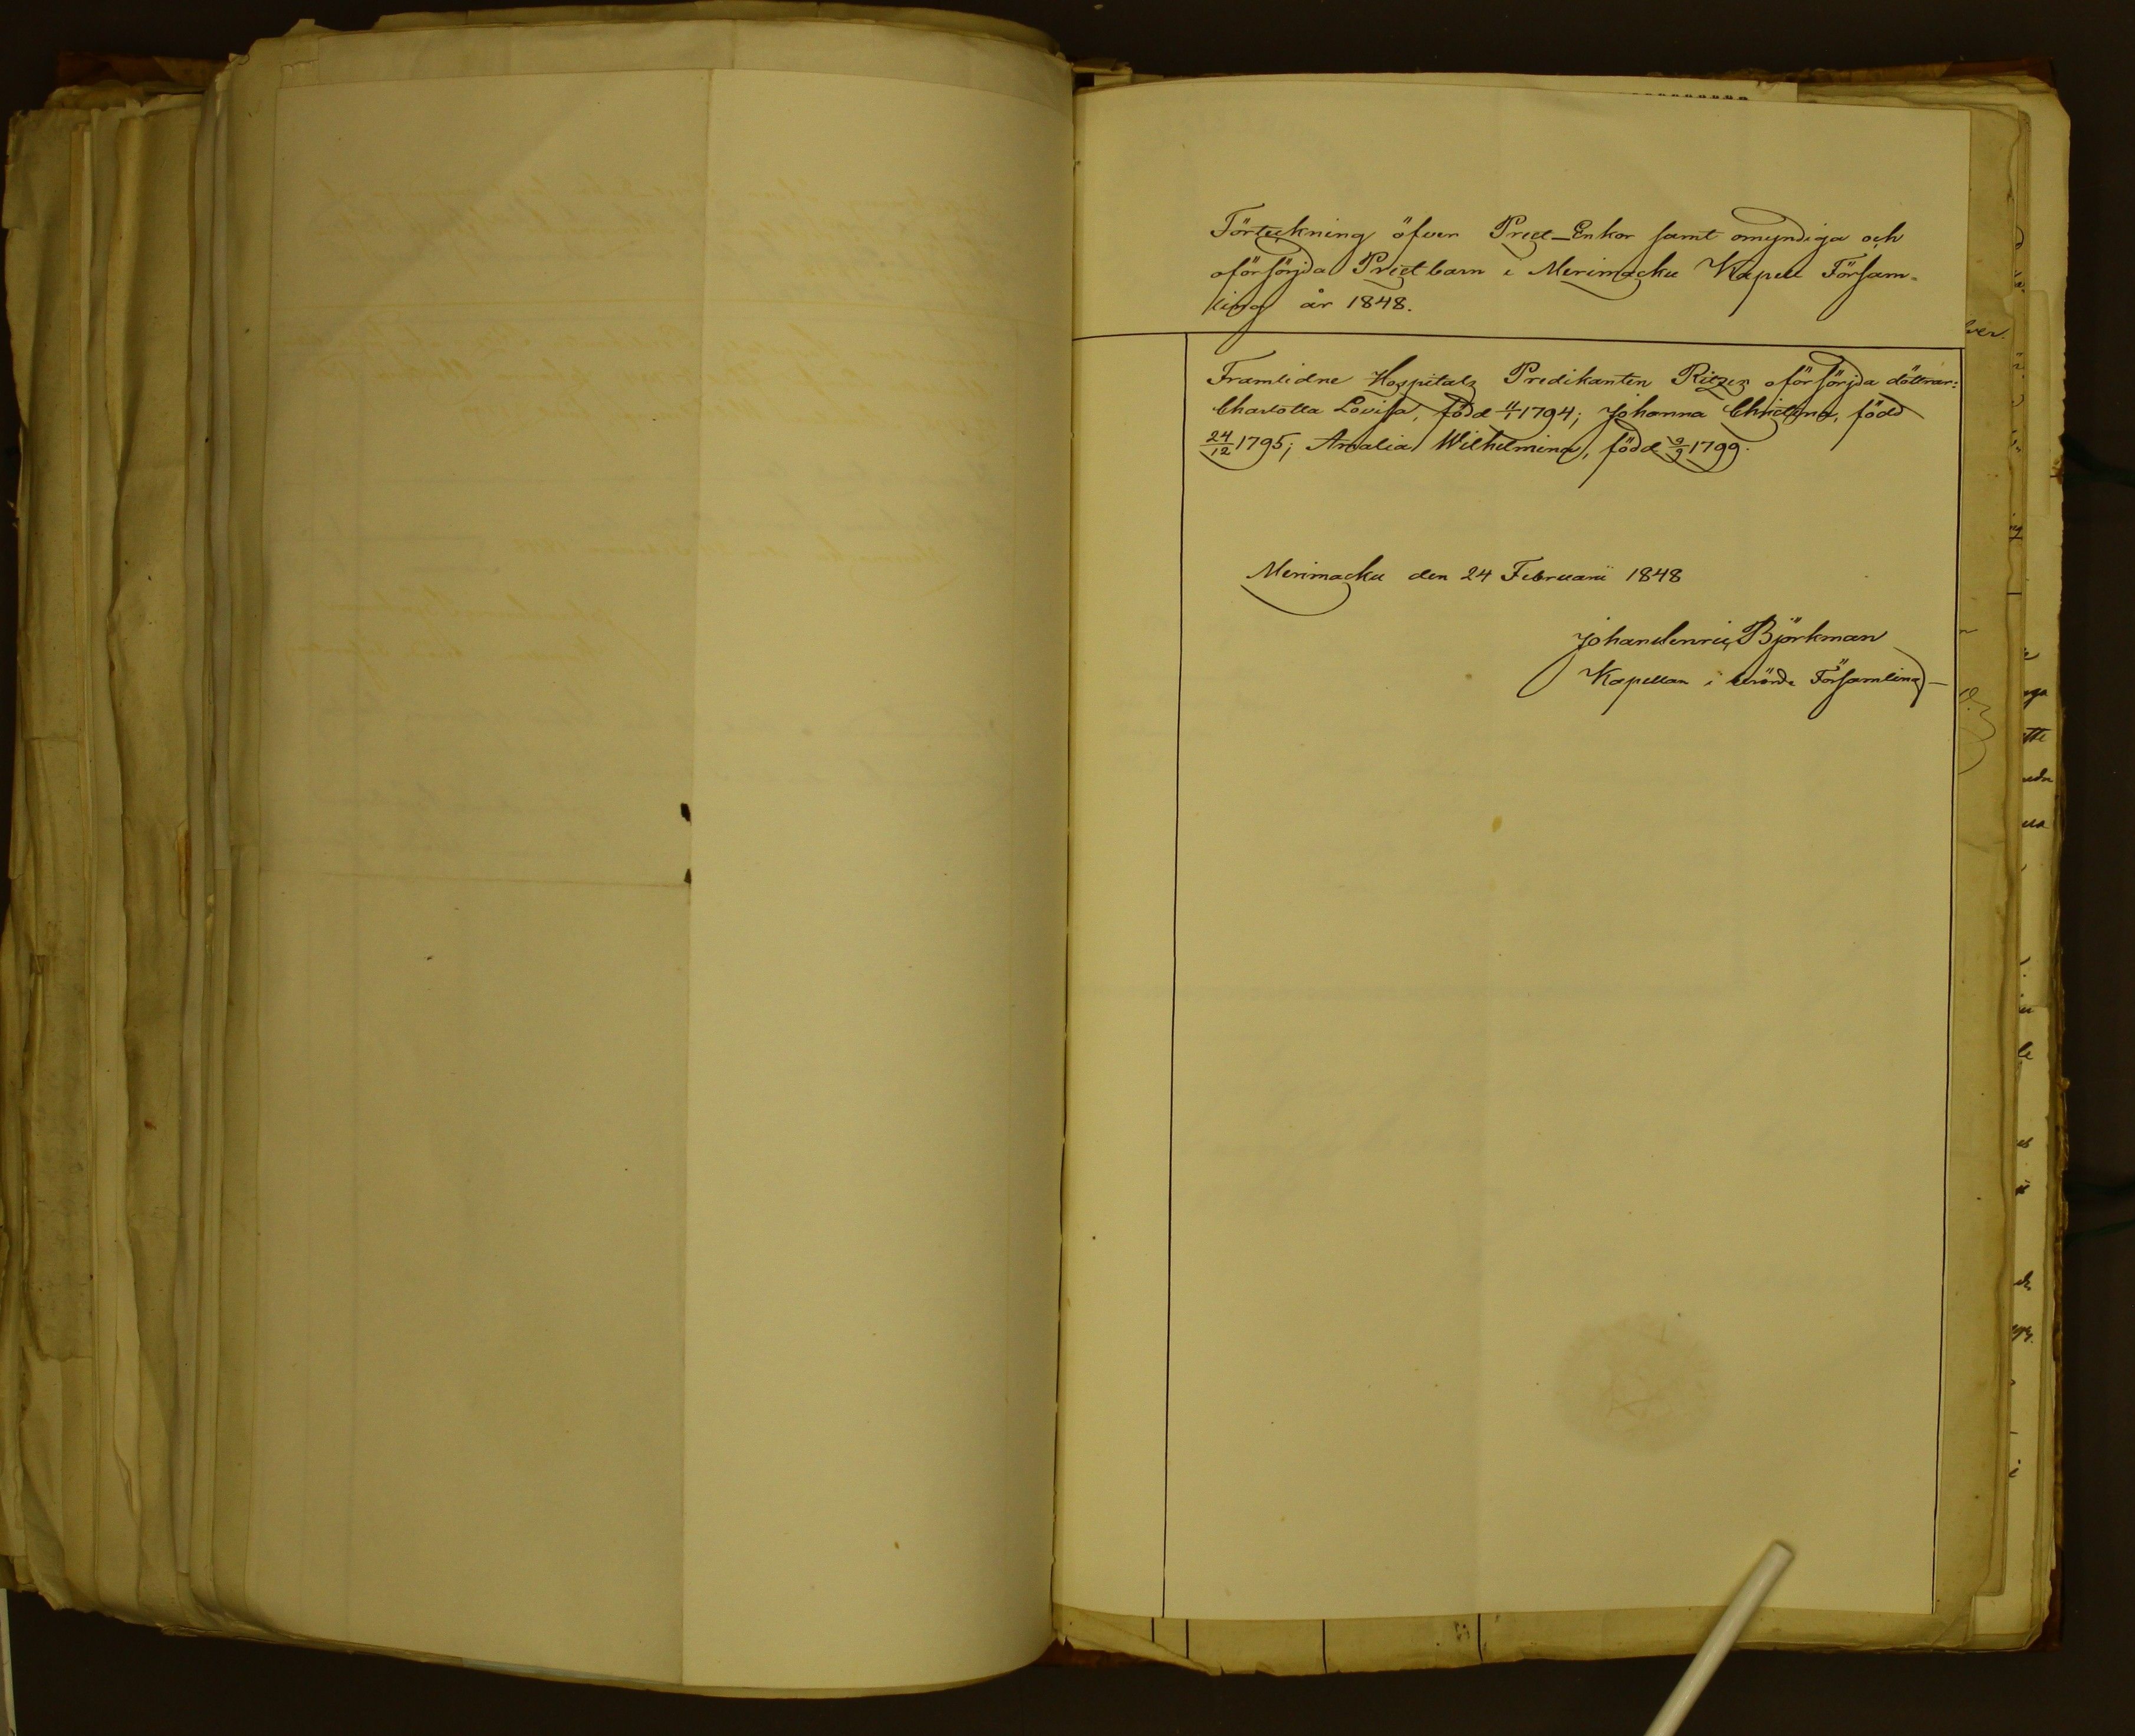 Förteckning öfver Prest-Enkor samt omyndiga och
oförsörjda Prestbarn i Merimasku Kapell Försam-
ling år 1848.
Framlidne Hospitals Predikanten Ritzes oförsörjda döttrar:
Charlotta Lovisa, född 4/1 1794; Johanna Christina, född
24/12 1795; Amalia Wilhelmina, född 9/9 1799.
Merimasku den 24 Februarii 1848
Johan Henric Björkman
Kapellan i berörde Församling